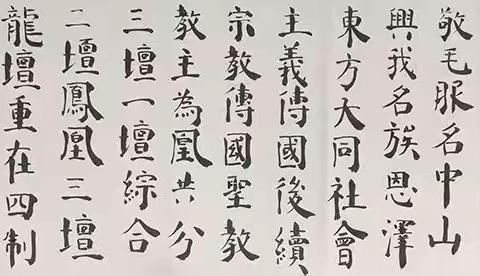 敬毛服名中山
興我名族恩澤
東方大同社會
主義傳國後續
宗教傳國聖教
教主為凰共分
三壇一壇綜合
二壇鳳凰三壇
龍壇重在四制